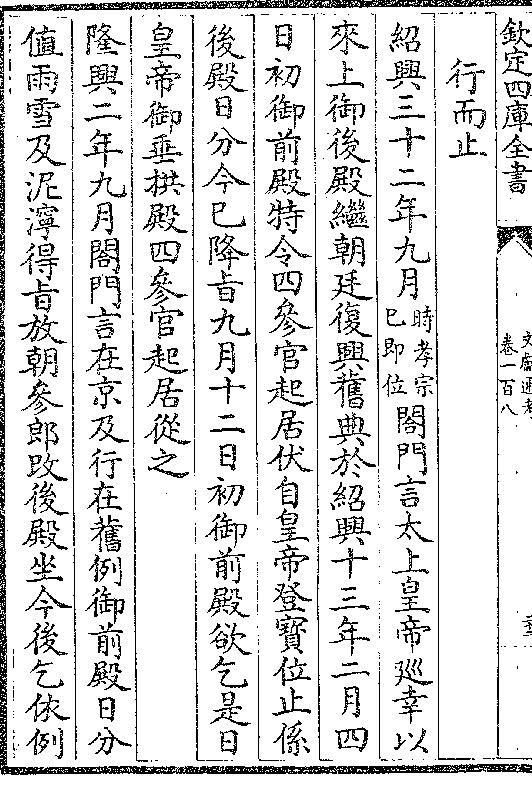 欽定四庫全書
文獻通考
卷一百八
行而止
紹興三十二年九月時孝宗已即位閤門言太上皇帝廵幸以
來上御後殿繼朝廷復興舊典於紹興十三年二月四
日初御前殿特令四參官起居伏自皇帝登寳位止係
後殿日分今已降旨九月十二日初御前殿欲乞是日
皇帝御垂拱殿四參官起居從之
隆興二年九月閤門言在京及行在舊例御前殿日分
值雨雪及泥濘得旨放朝參郎改後殿坐今後乞依例